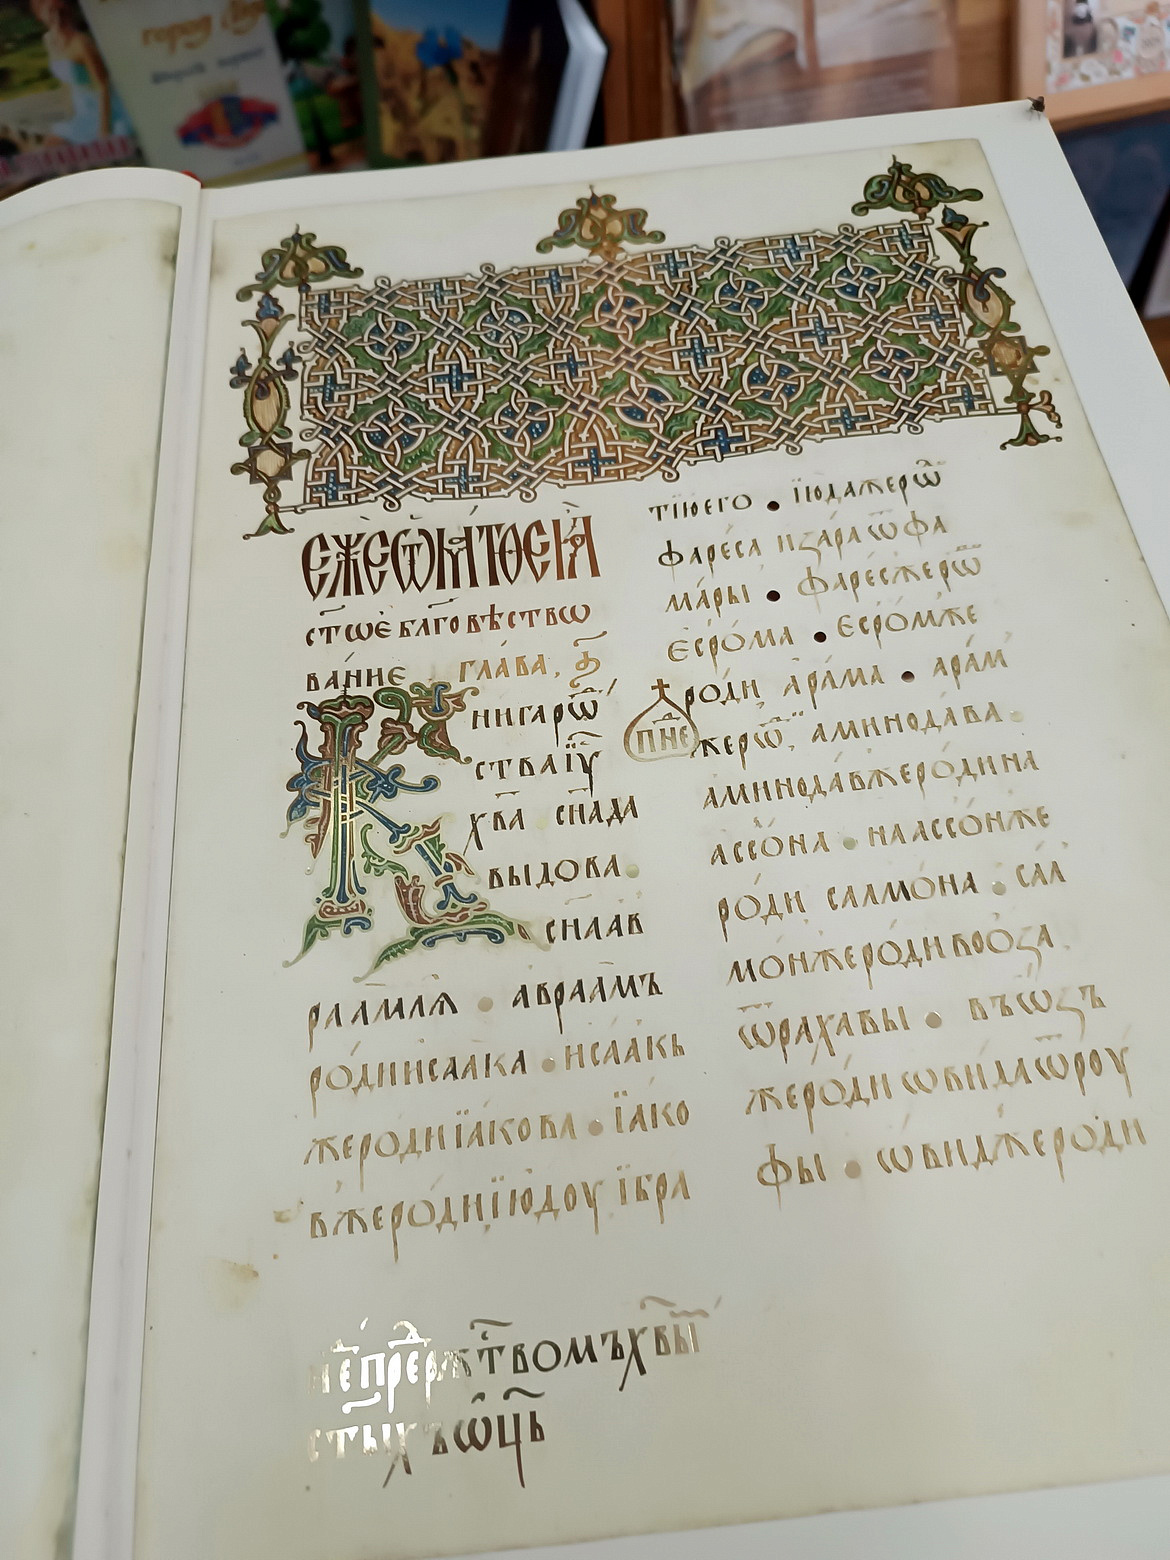 город
Є҆ЖЕѾМАТѲЕꙖ
ст҃ѡѐ бл҃говѣство
ва́нїе глава, а҃
нигарѡⷤ
стваі҆у҃
хв҃а сн҃ада
выдова
сн҃аав
раа́млѧ • авраа́мъ
ро́диисаа́ка • исаа́кь
жероди їа́кова • їа́ко
вжеро́ди їю́доу їбра
тїюего • їюдажерѡⷣ
фаре́са изара ѿфа
ма́ры • фаресжерѡⷣ
єсро́ма • єсро́мже
роди а҆ра́ма • ара́м
п҃не
жерѡⷣ, аминода́ва
аминода́вжеро́дина
ассо́на • наассо́нже
ро́ди салмо́на • сал
мо́нжеро́дивоо́за
ѿраха́вы • во́ъѡзъ
жеро́ди ѡвида ѿроу
фы • ѡвиджеро́ди
не҃пре́рж҃твомъ хв҃ы
ст҃ыхъ ѻ҃ць